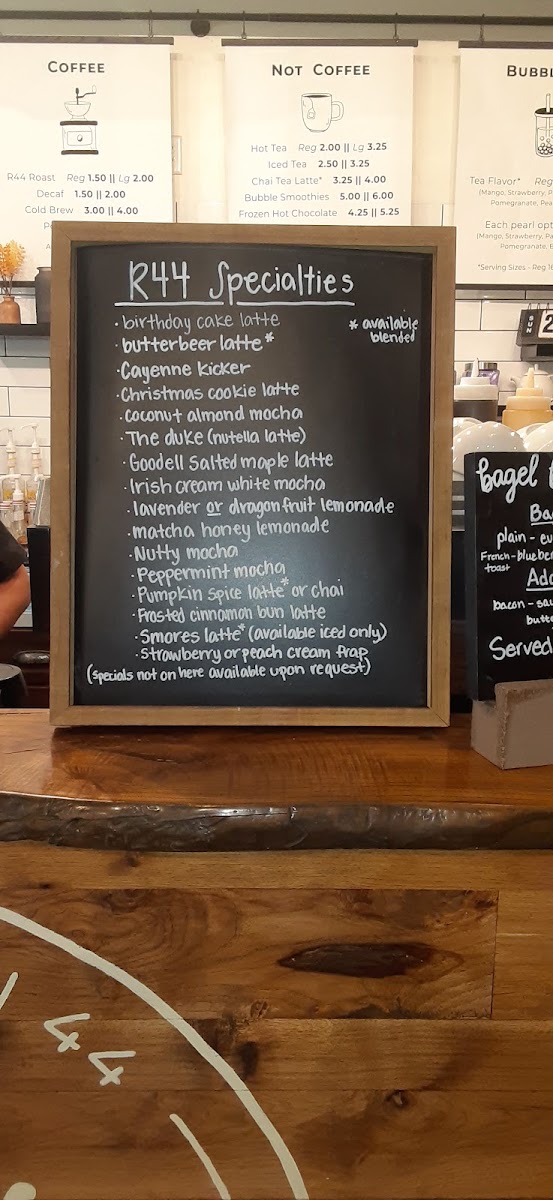 COFFEE
R44 Roast Reg 1.50 || Lg 2.00
Decaf 1.50 || 2.00
Cold Brew 3.00 || 4.00
NOT COFFEE
Hot Tea Reg 2.00 || Lg 3.25
Iced Tea 2.50 || 3.25
Chai Tea Latte* 3.25 || 4.00
Bubble Smoothies 5.00 || 6.00
Frozen Hot Chocolate 4.25 || 5.25
BUBBL
Tea Flavor* Reg
(Mango, Strawberry, P
Pomegranate, Pea
Each pearl opt
(Mango, Strawberry, Pa
Pomegranate, B
*Serving Sizes - Reg 16
SUN
2
R44 Specialties
* available
blended
· birthday cake latte
· butterbeer latte*
· Cayenne kicker
· Christmas cookie latte
· coconut almond mocha
· The duke (nutella latte)
· Goodell Salted maple latte
· Irish cream white mocha
· lavender or dragonfruit lemonade
· matcha honey lemonade
· Nutty mocha
· Peppermint mocha
· Pumpkin spice latte* or chai
· Frosted cinnamon bun latte
· Smores latte* (available iced only)
· Strawberry or peach cream frap
(specials not on here available upon request)
bagel
Ba
plain - ev
French - blueber
toast
Add
bacon - sau
butte
Served
44